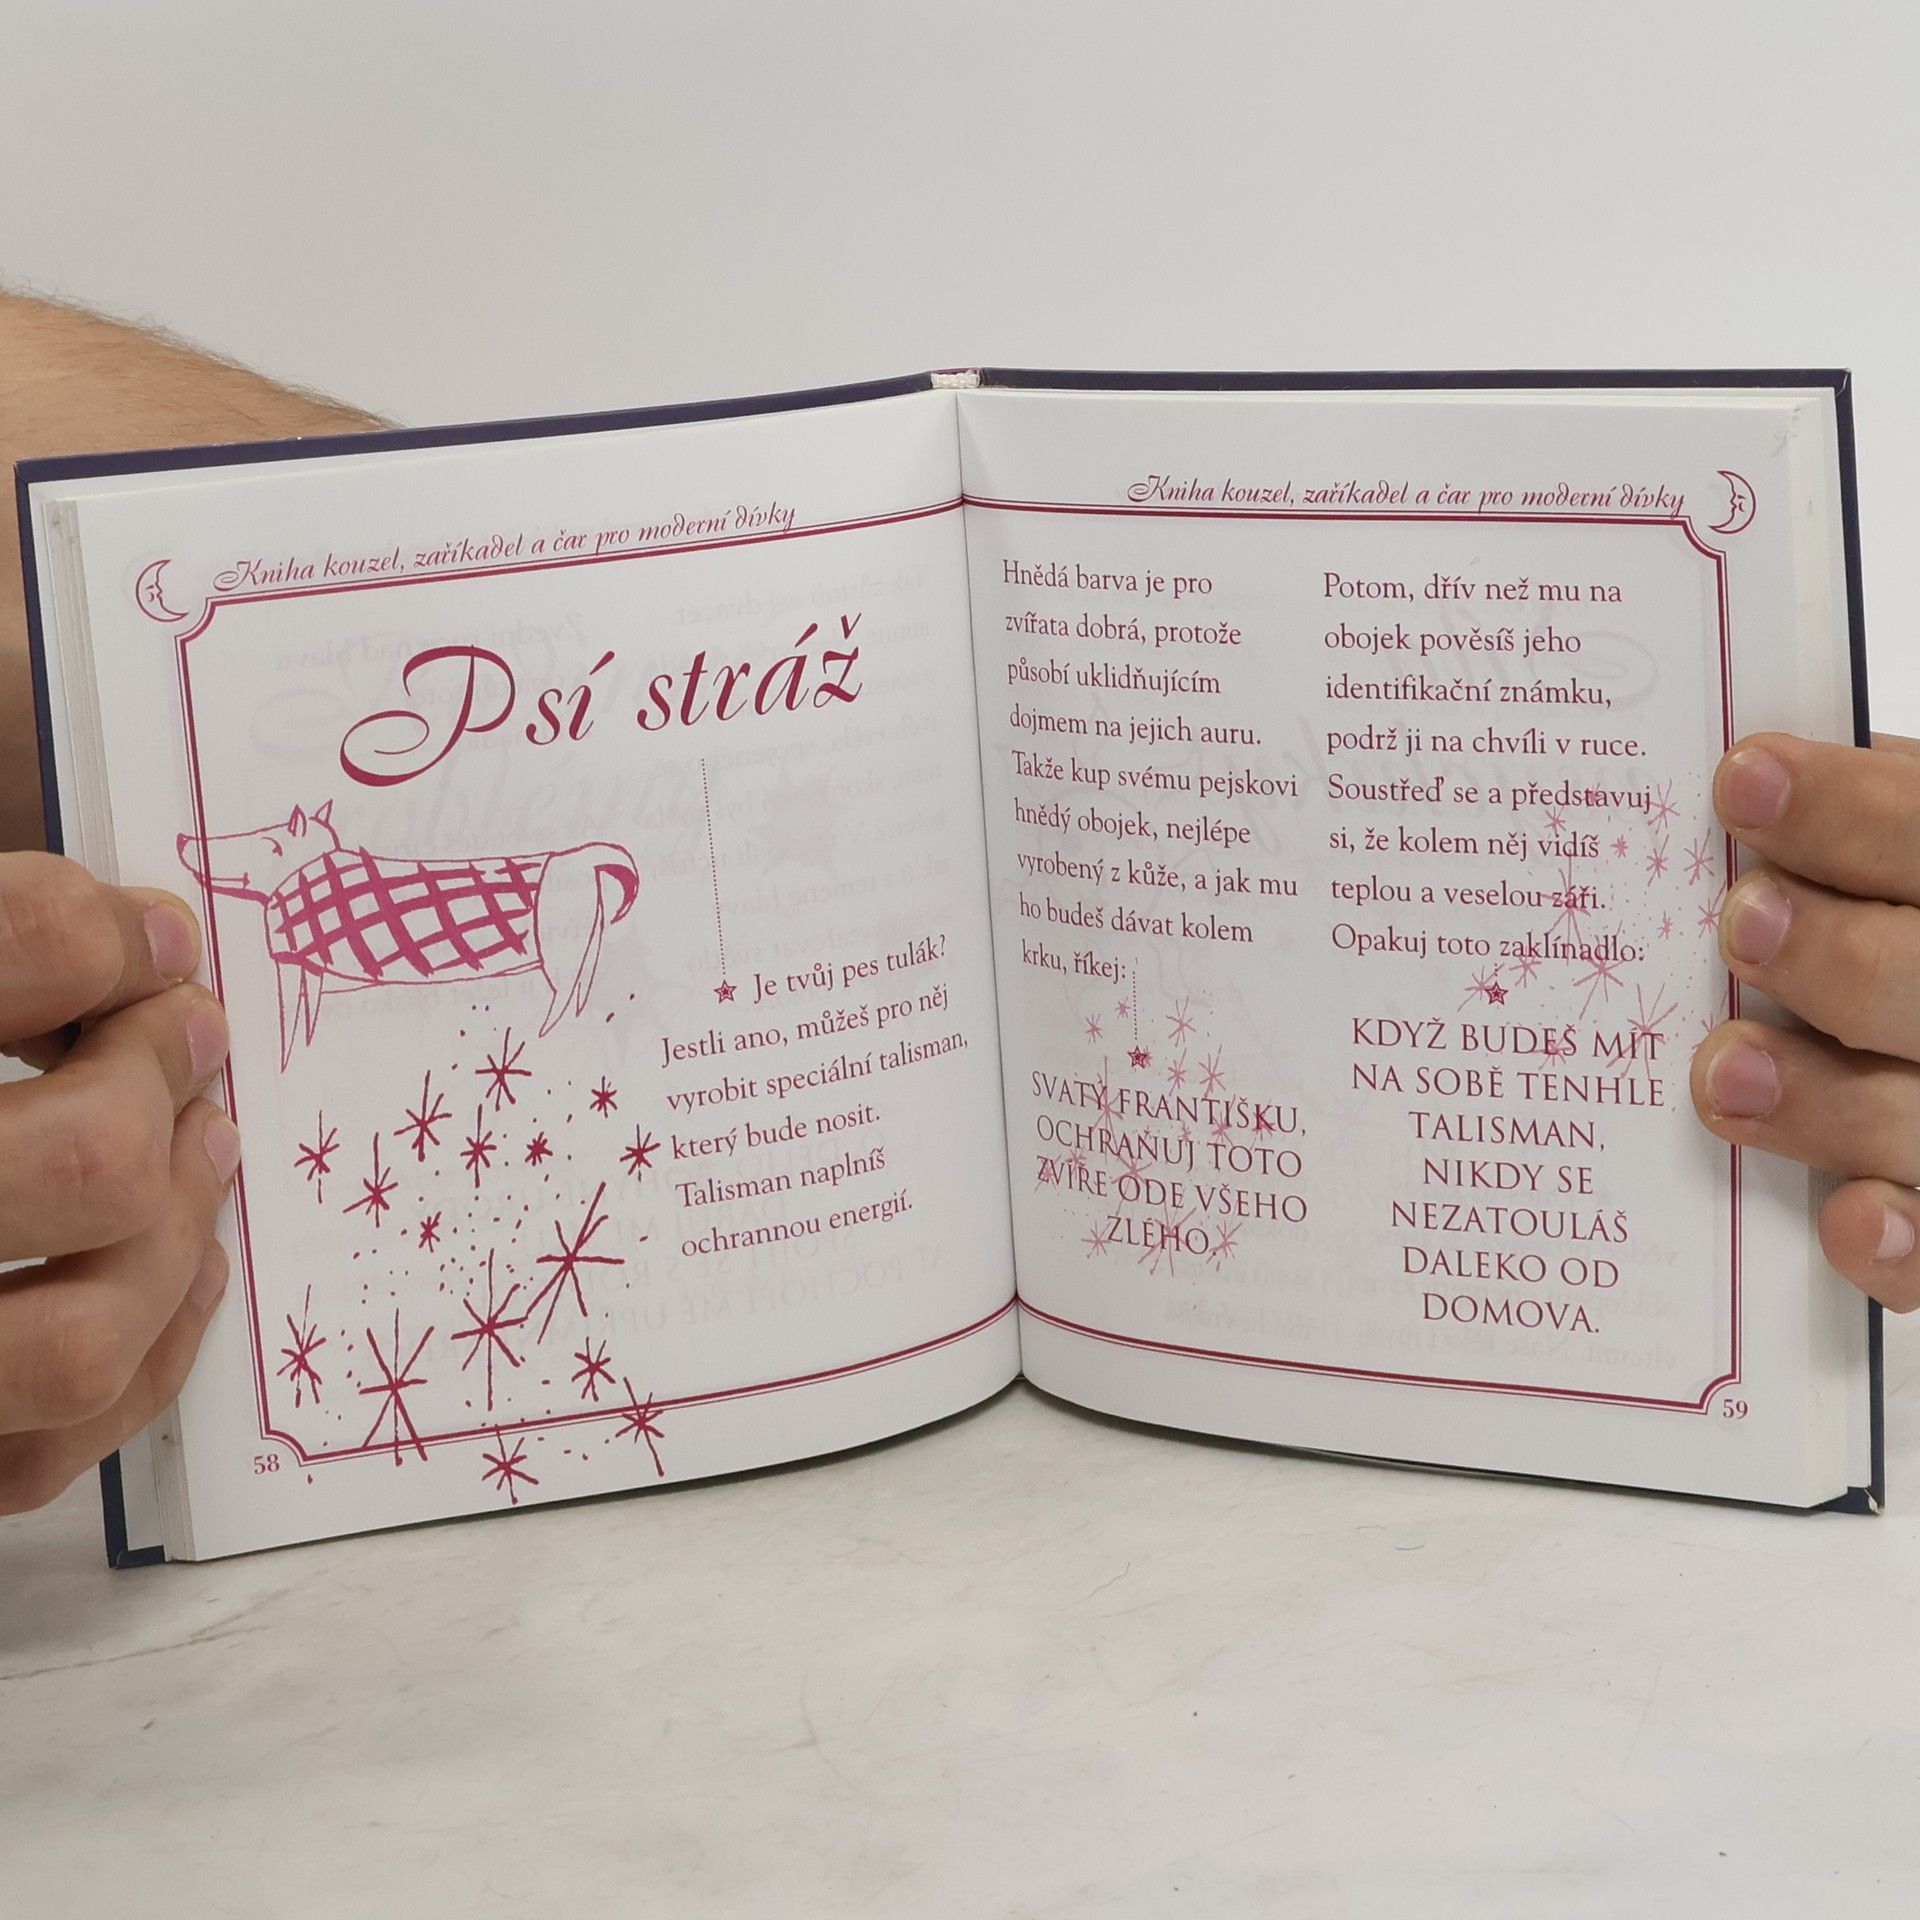 Kniha kouzel, zaříkadel a čar pro moderní dívky
Psí stráž
Je tvůj pes tulák?
Jestli ano, můžeš pro něj
vyrobit speciální talisman,
který bude nosit.
Talisman naplníš
ochrannou energií.
58
Kniha kouzel, zaříkadel a čar pro moderní dívky
Hnědá barva je pro
zvířata dobrá, protože
působí uklidňujícím
dojmem na jejich auru.
Takže kup svému pejskovi
hnědý obojek, nejlépe
vyrobený z kůže, a jak mu
ho budeš dávat kolem
krku, říkej:
SVATÝ FRANTIŠKU,
OCHRAŇUJ TOTO
ZVÍŘE ODE VŠEHO
ZLÉHO.
Potom, dřív než mu na
obojek pověsíš jeho
identifikační známku,
podrž ji na chvíli v ruce.
Soustřeď se a představuj
si, že kolem něj vidíš
teplou a veselou záři.
Opakuj toto zaklínadlo:
KDYŽ BUDEŠ MÍT
NA SOBĚ TENHLE
TALISMAN,
NIKDY SE
NEZATOULÁŠ
DALEKO OD
DOMOVA.
59